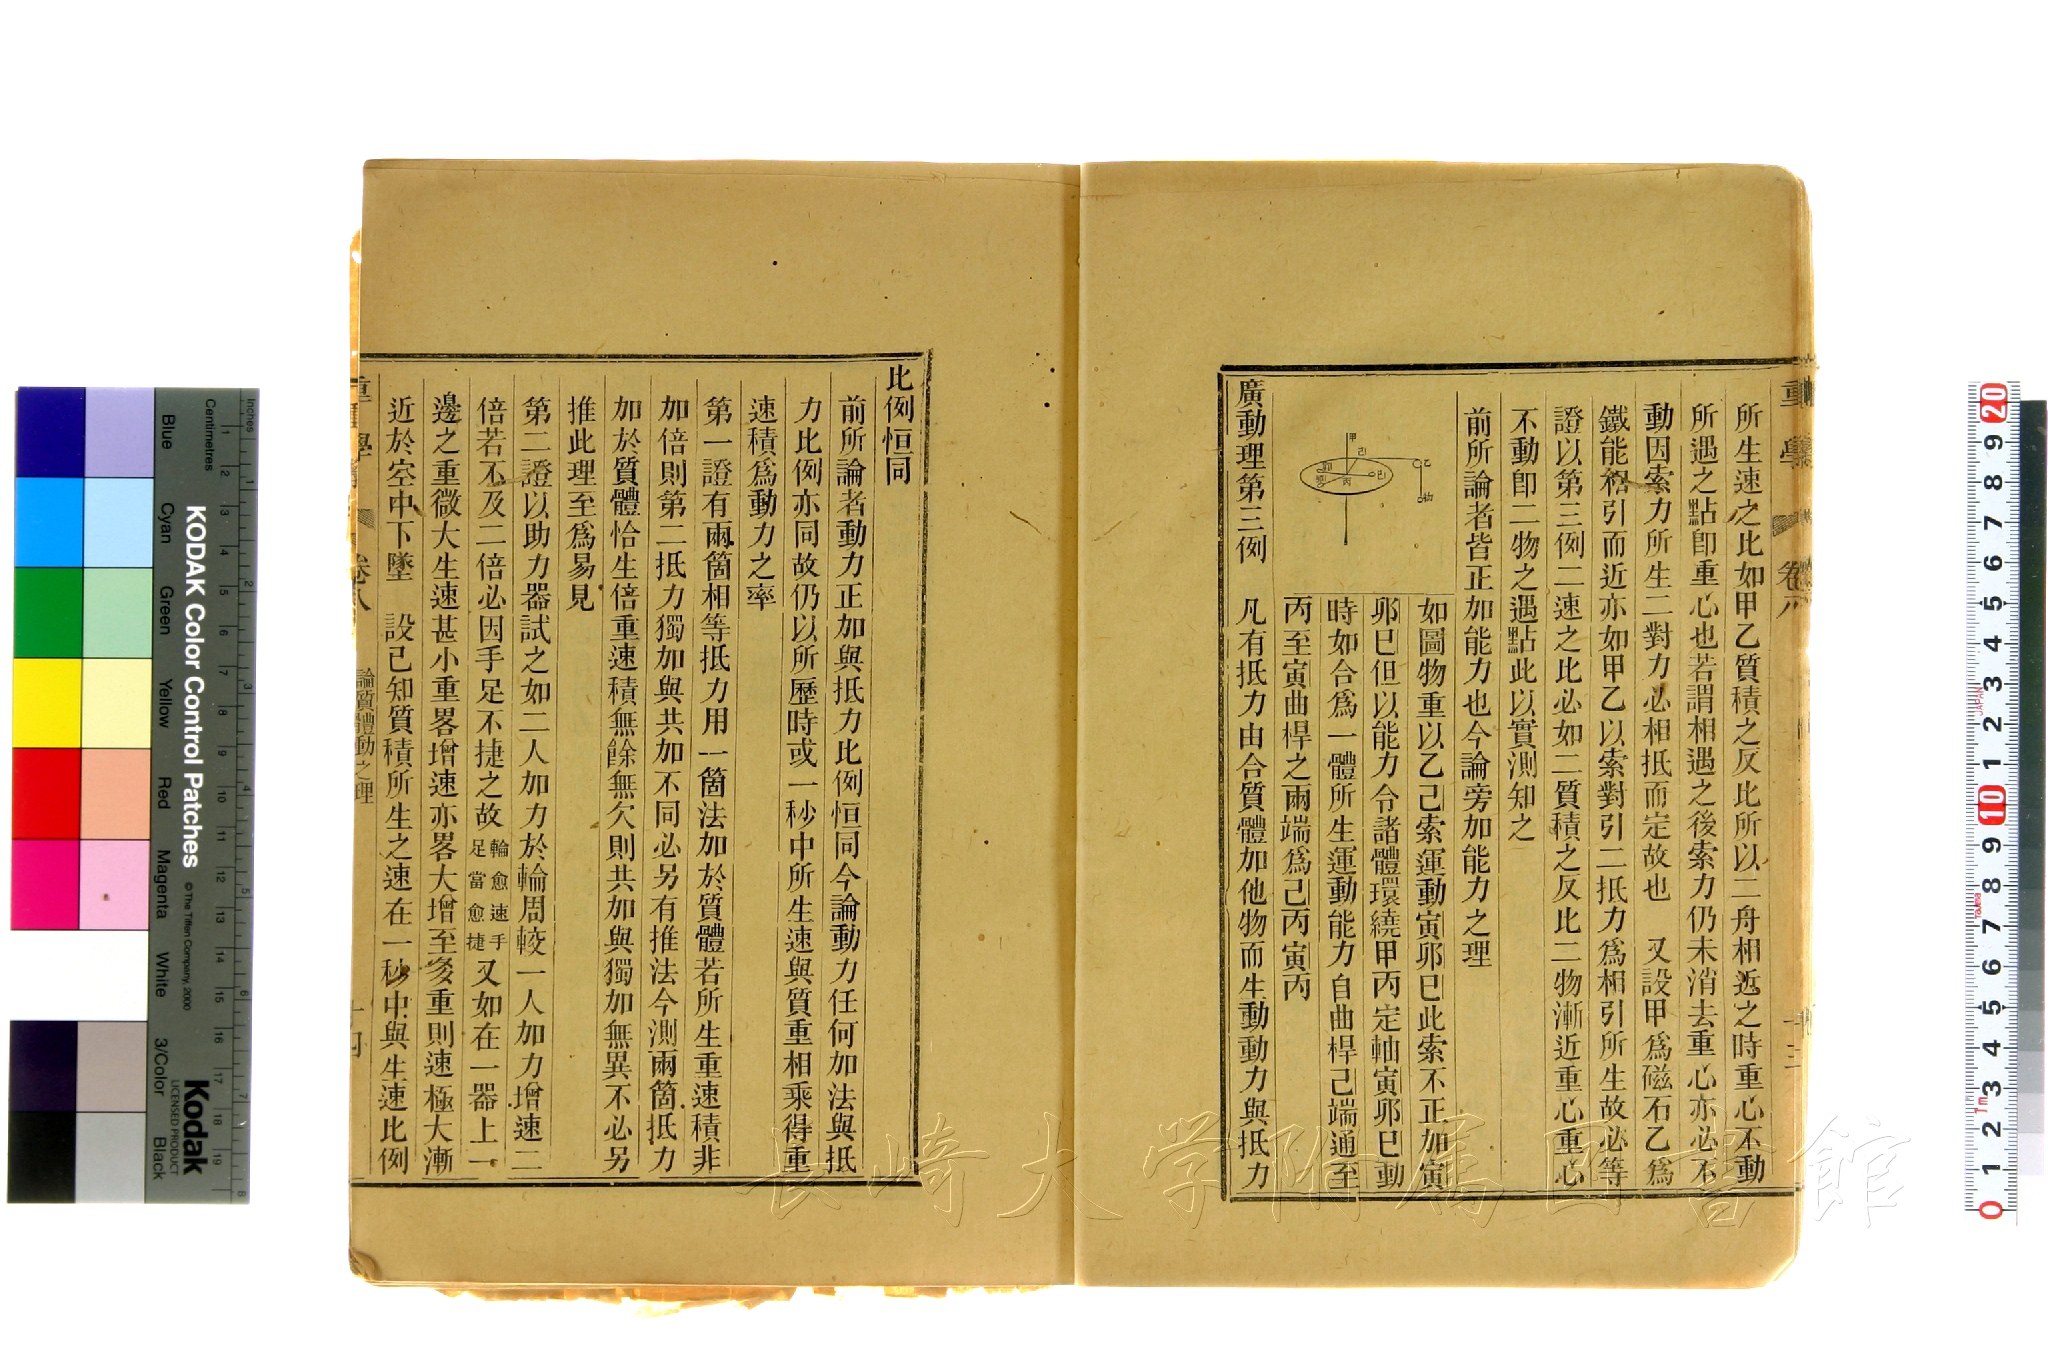 重學
卷八
所生速之比如甲乙質積之反比所以二舟相近之時重心不動
所遇之點即重心也若謂相遇之後索力仍未消去重心亦必不
動因索力所生二對力必相抵而定故也　又設甲爲磁石乙爲
鐵能相引而近亦如甲乙以索對引二抵力爲相引所生故必等
證以第三例二速之比必如二質積之反比二物漸近重心重心
不動即二物之遇點此以實測知之
前所論者皆正加能力也今論旁加能力之理
如圖物重以乙己索運動寅卯巳此索不正加寅
卯巳但以能力令諸體環繞甲丙定軸寅卯巳動
時如合爲一體所生運動能力自曲桿己端通至
丙至寅曲桿之兩端爲己丙寅丙
廣動理第三例　凡有抵力由合質體加他物而生動動力與抵力
比例恒同
前所論者動力正加與抵力比例恒同今論動力任何加法與抵
力比例亦同故仍以所歷時或一秒中所生速與質重相乘得重
速積爲動力之率
第一證有兩箇相等抵力用一箇法加於質體若所生重速積非
加倍則第二抵力獨加與共加不同必另有推法今測兩箇抵力
加於質體恰生倍重速積無餘無欠則共加與獨加無異不必另
推此理至爲易見
第二證以助力器試之如二人加力於輪周較一人加力增速二
倍若不及二倍必因手足不捷之故輪愈速手足當愈捷又如在一器上一
邊之重微大生速甚小重畧增速亦畧大增至多重則速極大漸
近於空中下墜　設已知質積所生之速在一秒中與生速比例
重學
卷八
論質體動之理
十四
KODAK Color Control Patches
© The Tiffen Company, 2000
Kodak
LICENSED PRODUCT
Inches
Centimetres
Blue
Cyan
Green
Yellow
Red
Magenta
White
3/Color
Black
JAPAN
長崎大学附属図書館